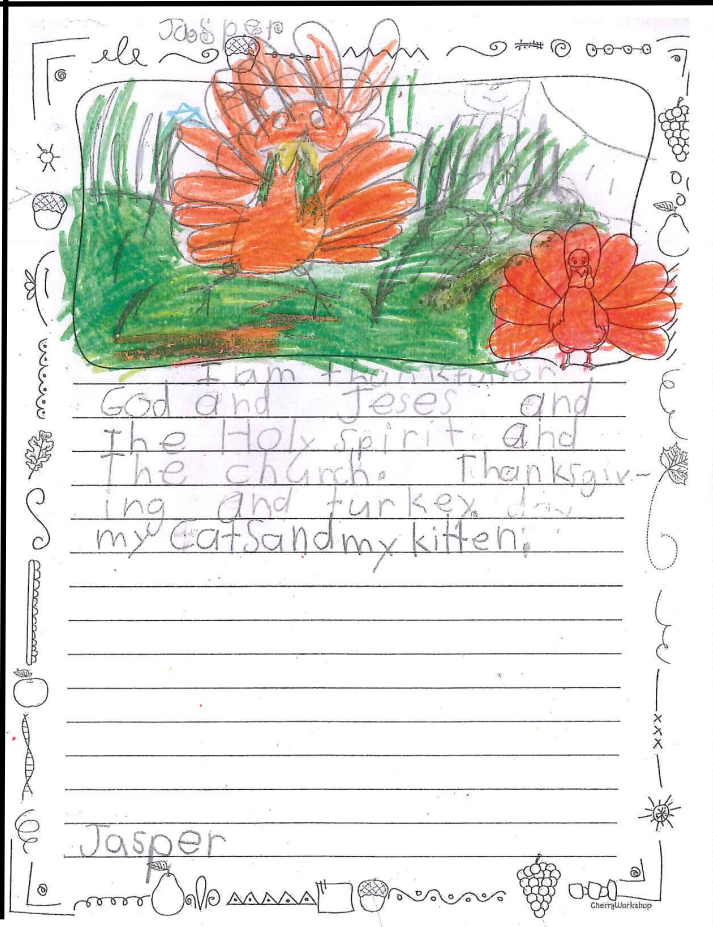 Jasper
I am thankful for
God and Jeses and
The Holy spirit and
The church. Thanksgiv-
ing and turkey day
my Catsandmy kitten.
Jasper
CherryWorkshop